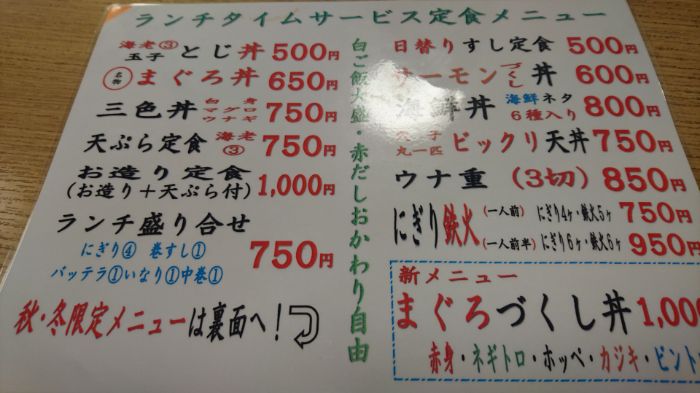 ランチタイムサービス定食メニュー
海老③玉子とじ丼 500円
名物 まぐろ丼 650円
三色丼 マグロ ウナギ 750円
天ぷら定食 海老③ 750円
お造り定食
(お造り+天ぷら付) 1,000円
ランチ盛り合せ
にぎり④ 巻すし①
バッテラ①いなり①中巻① 750円
秋・冬限定メニューは裏面へ!
白ご飯大盛・赤だしおかわり自由
日替りすし定食 500円
サーモンづくし丼 600円
海鮮丼 海鮮ネタ6種入り 800円
穴子丸一匹 ビックリ天丼 750円
ウナ重(3切) 850円
にぎり鉄火 (一人前) にぎり4ヶ・鉄火5ヶ 750円
(一人前半) にぎり6ヶ・鉄火6ヶ 950円
新メニュー
まぐろづくし丼 1,00
赤身・ネギトロ・ホッペ・カジキ・ビント